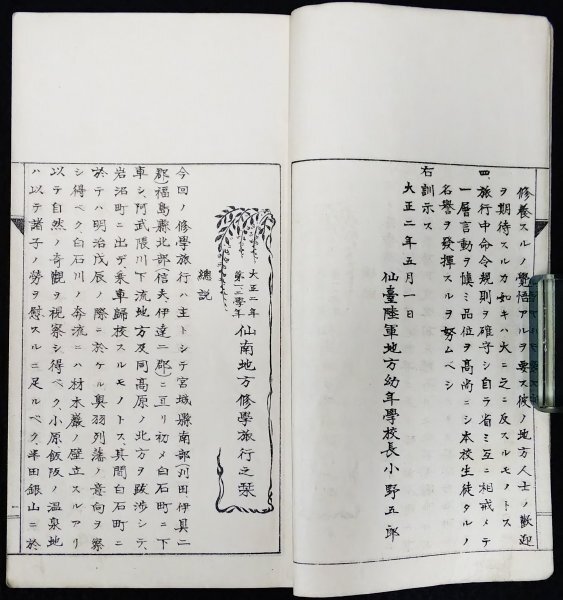 修養スルノ覺悟アルヲ要ス彼ノ地方人士ノ歡迎
ヲ期待スルカ如キハ大ニ之ニ反スルモノトス
四、旅行中命令規則ヲ確守シ自ラ省ミ互ニ相戒メテ
一層言動ヲ愼ミ品位ヲ高尚ニシ本校生徒タルノ
名譽ヲ發揮スルヲ努ムベシ
右訓示ス
大正二年五月一日
仙臺陸軍地方幼年學校長小野五郎
大正二年
第一二學年
仙南地方修學旅行之栞
總説
今回ノ修學旅行ハ主トシテ宮城縣南部(刈田伊具二
郡)福島縣北部(信夫伊達二郡)ニ亙リ初メ白石町ニ下
車シ、阿武隈川下流地方及同高原ノ北方ヲ跋渉シテ、
岩沼町ニ出デ乘車歸校スルモノトス、其間白石町ニ
於テハ明治戊辰ノ際ニ於ケル奥羽列藩ノ意向ヲ察
シ得ベク、白石川ノ奔流ニハ材木巖ノ壁立スルアリ
以テ自然ノ奇觀ヲ視察シ得ベク、小原飯阪ノ温泉地
ハ以テ諸子ノ勞ヲ慰スルニ足ルベク、半田銀山ニ於
一